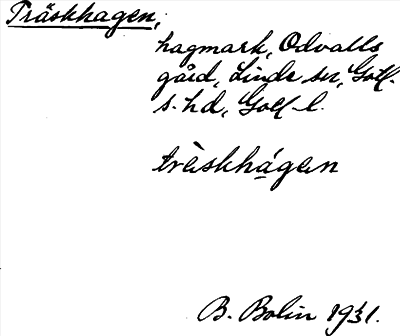 Träskhagen,
hagmark, Odvalls
gård, Linde sn, Gotl.
s. hd, Gotl. l.
trȧ̀skhágen
B. Bolin 1931.